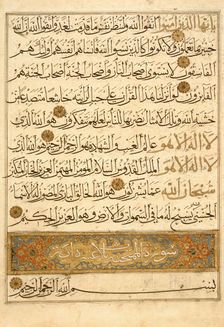 يا أيها الذين آمنوا اتقوا الله ولتنظر نفس ما قدمت لغد واتقوا الله إن الله
خبير بما تعملون ولا تكونوا كالذين نسوا الله فأنسيهم أنفسهم أولئك هم
الفاسقون لا يستوي أصحاب النار وأصحاب الجنة أصحاب الجنة هم
الفائزون لو أنزلنا هذا القرآن على جبل لرأيته خاشعا متصدعا من
خشية الله وتلك الأمثال نضربها للناس لعلهم يتفكرون هو الله الذي
لا إله إلا هو عالم الغيب والشهادة هو الرحمن الرحيم هو الله الذي
لا إله إلا هو الملك القدوس السلام المؤمن المهيمن العزيز الجبار المتكبر
سبحان الله عما يشركون هو الله الخالق البارئ المصور له الأسماء
الحسنى يسبح له ما في السموات والأرض وهو العزيز الحكيم
سورة الممتحنة ثلاث عشرة اية
بسم الله الرحمن الرحيم